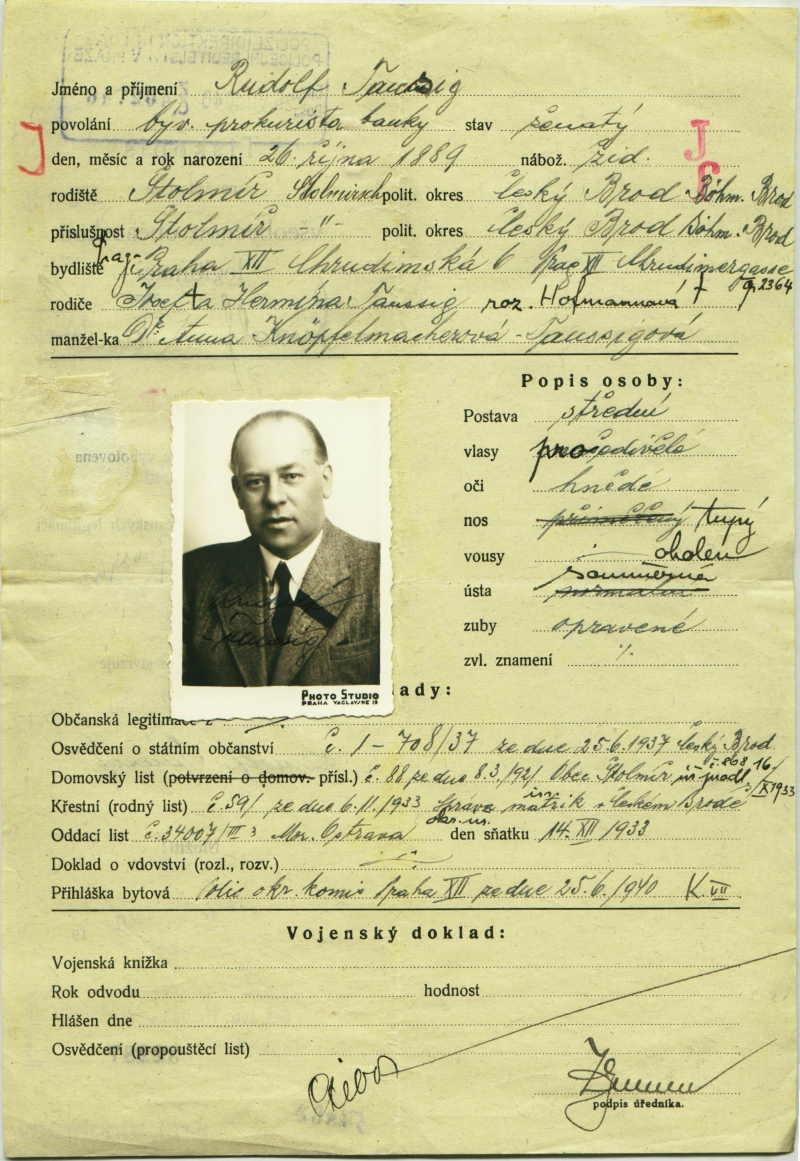 Jméno a příjmení Rudolf Taussig
povolání býv. prokurista banky stav ženatý
J den, měsíc a rok narození 26. října 1889 nábož. žid. J
rodiště Štolmíř Stolmirsch polit. okres Český Brod Böhm. Brod
příslušnost Štolmíř -"- polit. okres Český Brod Böhm. Brod
bydliště Praha XII Chrudimská 6 Prag XII Chrudimergasse
rodiče Josef a Hermína Taussig roz. Hofmannová † 2364
manžel-ka Dr. Anna Knöpfelmacherová-Taussigová
Popis osoby:
Postava střední
vlasy prošedivělé
oči hnědé
nos tupý
vousy oholen
ústa souměrná
normální
zuby opravené
zvl. znamení ·/·
Rudolf
Taussig
PHOTO STUDIO
PRAHA VÁCLAVSKÉ
ady:
Občanská legitimace
Osvědčení o státním občanství č. 1-708/37 ze dne 25.6.1937 Český Brod
Domovský list (potvrzení o domov. přísl.) č. 88 ze dne 8.3.1921 Obec Štolmíř
Křestní (rodný list) č. 591 ze dne 6.11.1933 Správa isr. matrik v Českém Brodě
Oddací list č. 34007/III Mor. Ostrava den sňatku 14. XII 1933
Doklad o vdovství (rozl., rozv.)
Přihláška bytová Polic okr. komis Praha XII ze dne 25.6.1940
Vojenský doklad:
Vojenská knížka
Rok odvodu hodnost
Hlášen dne
Osvědčení (propouštěcí list)
podpis úředníka.